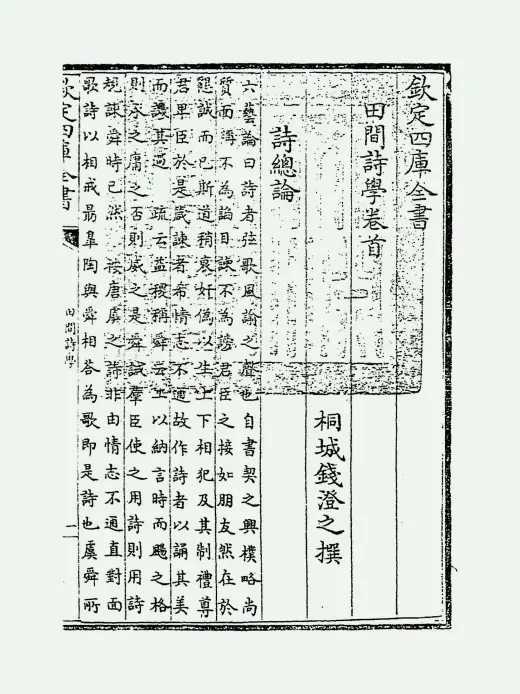 欽定四庫全書
田間詩學卷首
桐城錢澄之撰
詩總論
六藝論曰詩者弦歌風諭之聲也自書契之興樸略尚
質面稱不為諂目諫不為謗君臣之接如朋友然在於
懇誠而已斯道稍衰奸偽以生上下相犯及其制禮尊
君卑臣於是箴諫者希情志不通故作詩者以誦其美
而譏其過 疏云益稷稱舜云工以納言時而颺之格
則承之庸之否則威之是舜誡羣臣使之用詩則用詩
規諫舜時已然 按唐虞之詩非由情志不通直對面
歌詩以相戒勗皋陶與舜相答為歌即是詩也虞舜所
欽定四庫全書
田間詩學
一